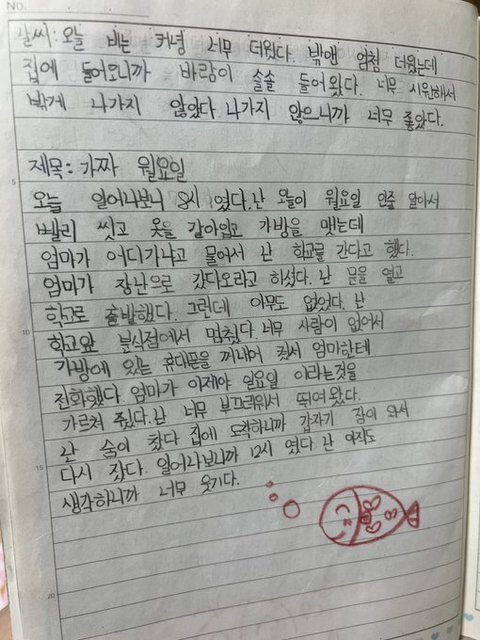 NO.
날씨: 오늘 비는 커녕 너무 더웠다. 밖앤 엄청 더웠는데
집에 들어오니까 바람이 솔솔 들어왔다. 너무 시원해서
밖게 나가지 않았다. 나가지 않으니까 너무 좋았다.
제목: 가짜 월요일
5
오늘 일어나보니 8시 였다. 난 오늘이 월요일 인줄 알아서
빨리 씻고 옷을 갈아입고 가방을 맸는데
엄마가 어디가냐고 물어서 난 학교를 간다고 했다.
엄마가 장난으로 갔다오라고 하셨다. 난 문을 열고
학교로 출발했다. 그런데 아무도 없었다. 난
10
학교앞 분식점에서 멈췄다. 너무 사람이 없어서
가방에 있는 휴대폰을 꺼내어 켜서 엄마한테
전화했다. 엄마가 이제야 일요일 이라는것을
가르쳐 줬다. 난 너무 부끄러워서 뛰어왔다.
난 숨이 찼다 집에 도착하니까 갑자기 잠이 와서
15
다시 잤다. 일어나보니까 12시 였다. 난 아직도
생각하니까 너무 웃기다.
20